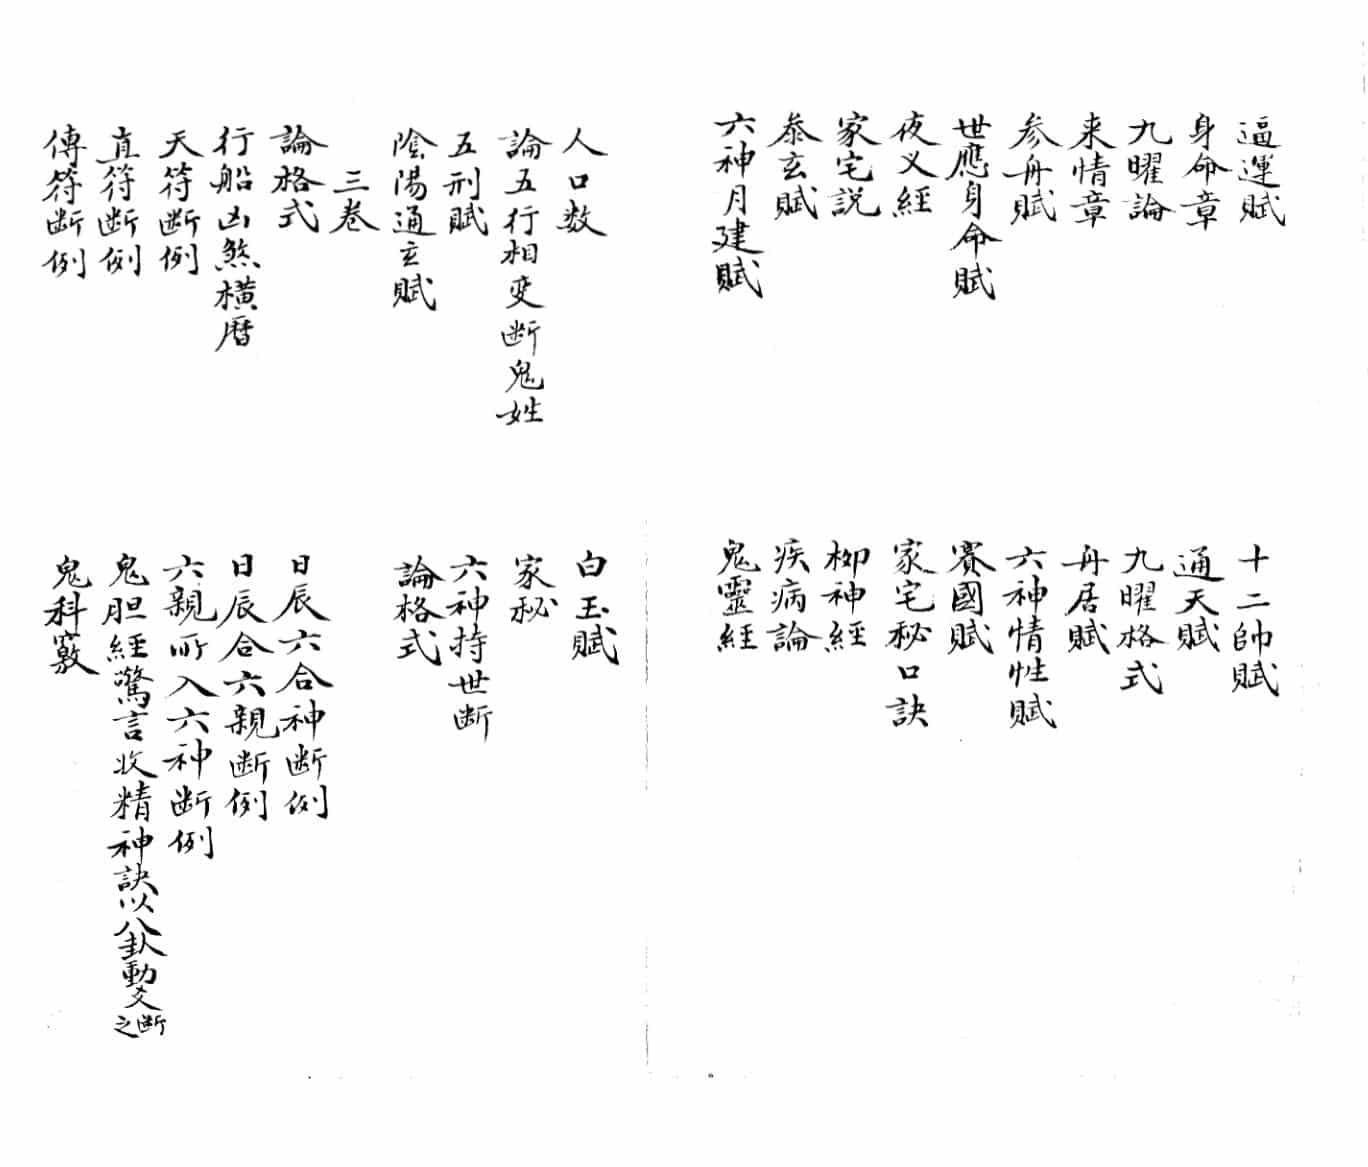 逼運賦
十二帥賦
身命章
通天賦
九曜論
九曜格式
来情章
舟居賦
参舟賦
六神情性賦
世應身命賦
賽國賦
夜义經
家宅秘口訣
家宅説
柳神經
恭玄賦
疾病論
六神月建賦
鬼靈經
人口数
白玉賦
論五行相变断鬼姓
家秘
五刑賦
六神持世断
陰陽通玄賦
論格式
三巻
論格式
日辰六合神断例
行船凶煞横暦
日辰合六親断例
天符断例
六親所入六神断例
直符断例
鬼胆經驚言收精神訣以八卦動爻断之
傳符断例
鬼科竅